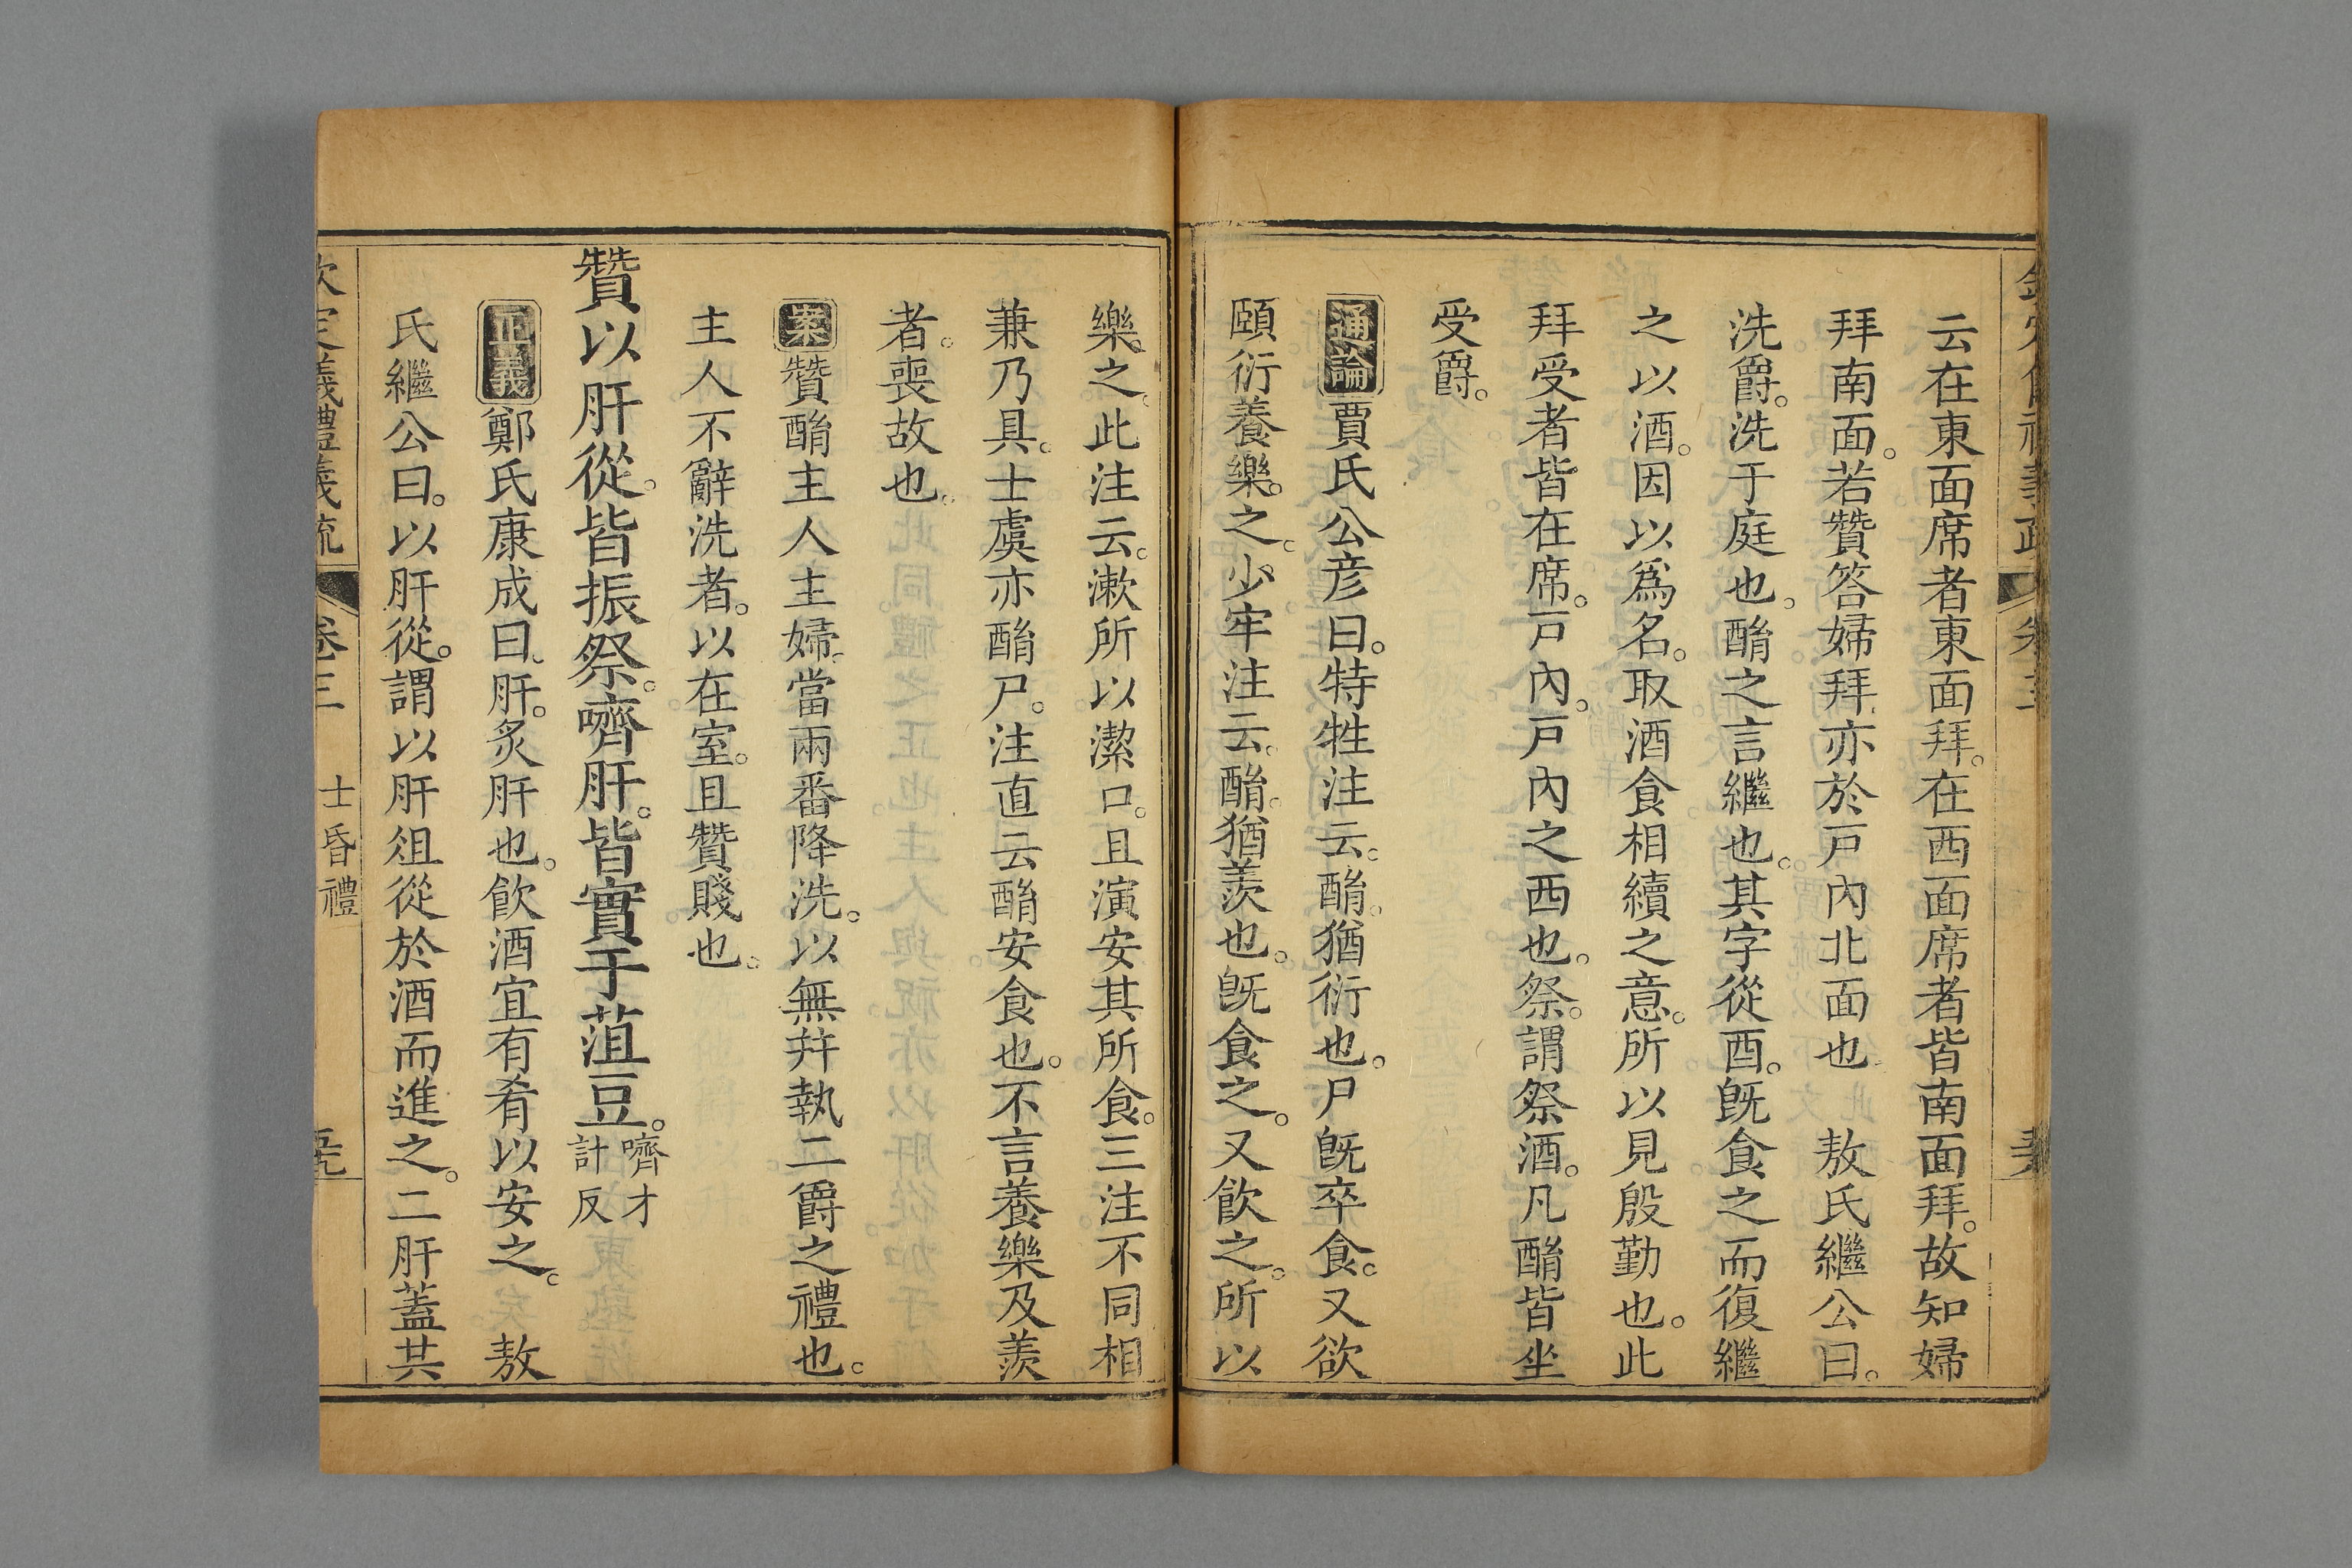 云在東面席者東面拜。在西面席者皆南面拜。故知婦
拜南面。若贊答婦拜亦於戸內北面也　敖氏繼公曰。
洗爵。洗于庭也。酳之言繼也。其字從酉。旣食之而復繼
之以酒。因以爲名。取酒食相續之意。所以見殷勤也。此
拜受者皆在席。戸內。戸內之西也。祭。謂祭酒。凡酳皆坐
受爵。
通論賈氏公彦曰。特牲注云。酳。猶衍也。尸旣卒食。又欲
頤衍養樂。之。少牢注云。酳。猶羨也。旣食之。又飮之。所以
樂。之。此注云。漱所以潔口。且演安其所食。三注不同相
兼乃具。士虞亦酳尸。注直云酳安食也。不言養樂及羨
者。喪故也。
案贊酳主人主婦。當兩番降洗。以無幷執二爵之禮也。
主人不辭洗者。以在室。且贊賤也。
贊以肝從。皆振祭。嚌肝。皆實于菹豆。嚌才計反
正義鄭氏康成曰。肝。炙肝也。飮酒宜有肴以安之。　敖
氏繼公曰。以肝從。謂以肝俎從於酒而進之。二肝蓋共
欽定義禮義疏　卷三　士昏禮